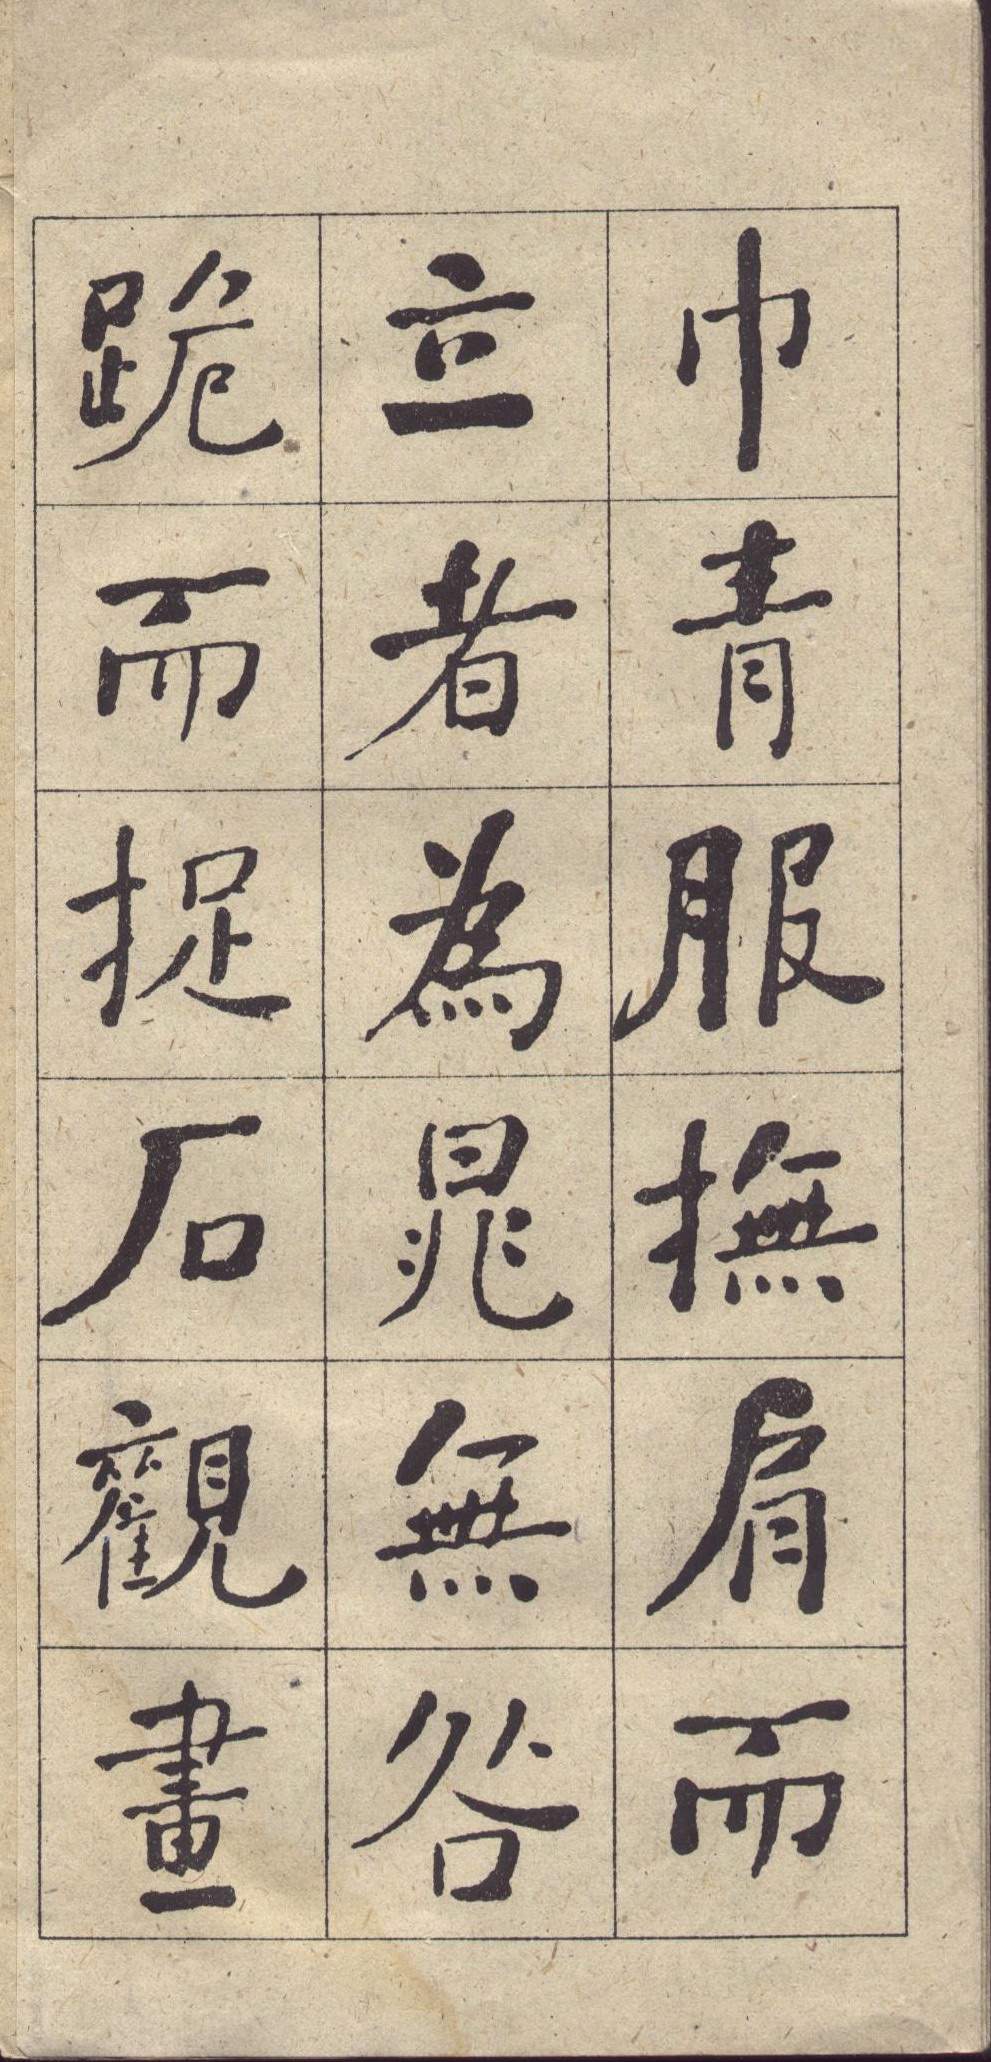 巾青服撫肩而
立者為晁無咎
跪而捉石觀畫